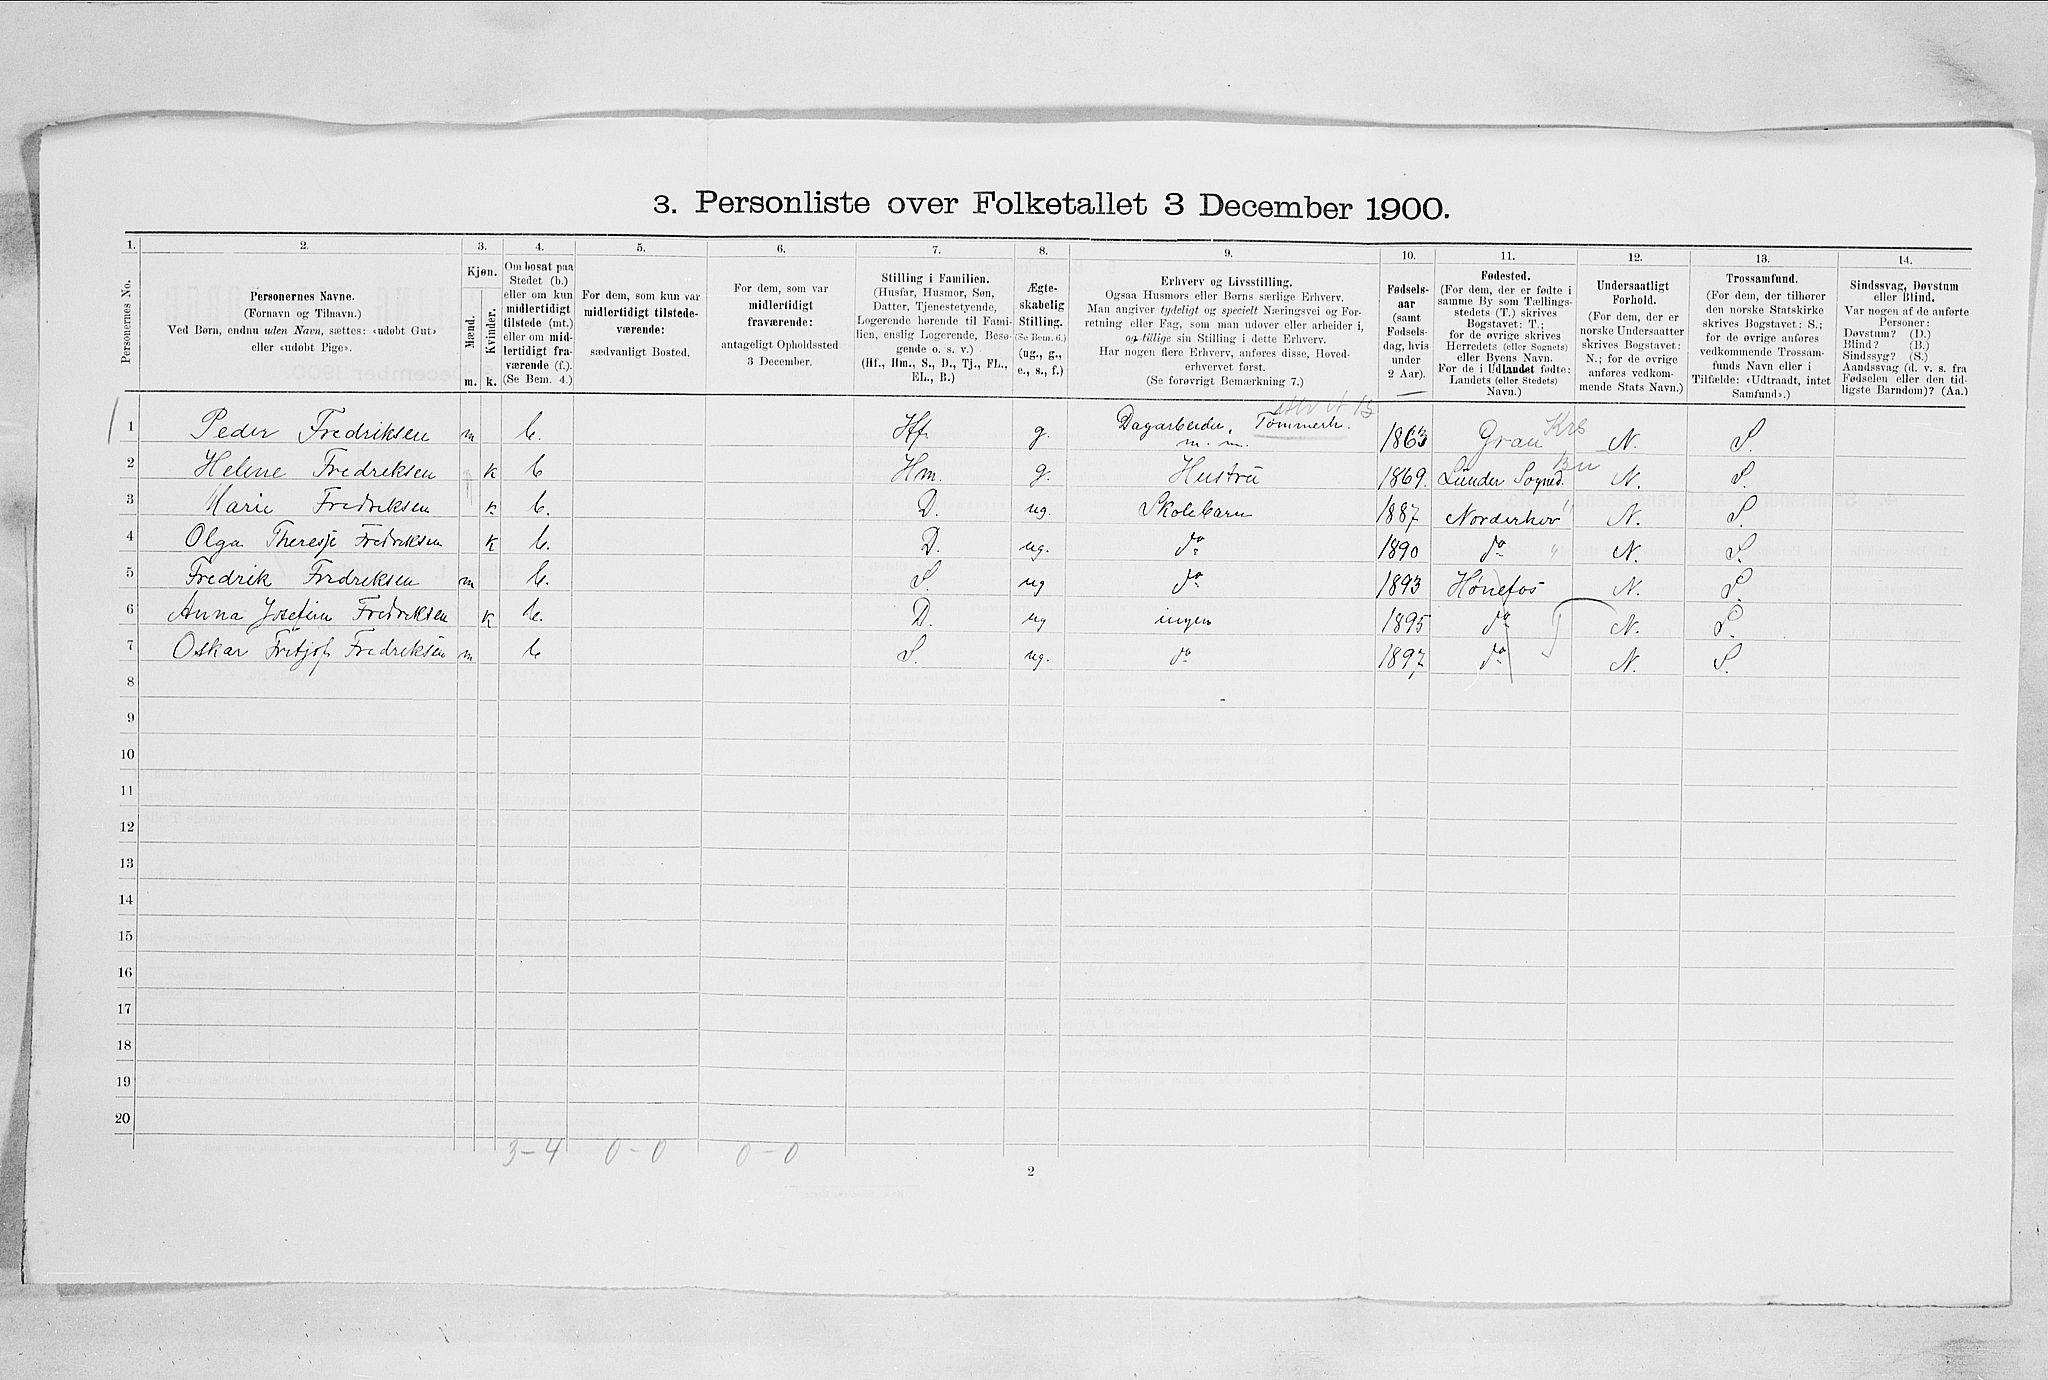 3. Personliste over Folketallet 3 December 1900.
1. 2. 3. 4. 5. 6. 7. 8. 9. 10. 11. 12. 13. 14.
Personernes No.
Personernes Navne.
(Fornavn og Tilnavn.)
Ved Børn, endnu uden Navn, sættes: «udøbt Gut»
eller «udøbt Pige».
Kjøn.
Mænd.
Kvinder.
m. k.
Om bosat paa
Stedet (b.)
eller om kun
midlertidigt
tilstede (mt.)
eller om mid-
lertidigt fra-
værende (f.).
(Se Bem. 4.)
For dem, som kun var
midlertidigt tilstede-
værende:
sædvanligt Bosted.
For dem, som var
midlertidigt
fraværende:
antageligt Opholdssted
3 December.
Stilling i Familien.
(Husfar, Husmor, Søn,
Datter, Tjenestetyende,
Logerende hørende til Fami-
lien, enslig Logerende, Besø-
gende o. s. v.)
(Hf., Hm., S., D., Tj., FL.,
EL., B.)
Ægte-
skabelig
Stilling.
(Se Bem. 6.)
(ug., g.,
e., s., f.)
Erhverv og Livsstilling.
Ogsaa Husmors eller Børns særlige Erhverv.
Man angiver tydeligt og specielt Næringsvei og For-
retning eller Fag, som man udøver eller arbeider i,
og tillige sin Stilling i dette Erhverv.
Har nogen flere Erhverv, anføres disse, Hoved-
erhvervet først.
(Se forøvrigt Bemærkning 7.)
Fødsels-
aar
(samt
Fødsels-
dag, hvis
under
2 Aar).
Fødested.
(For dem, der er fødte i
samme By som Tællings-
stedets (T.) skrives
Bogstavet: T.;
for de øvrige skrives
Herredets (eller Sognets)
eller Byens Navn.
For de i Udlandet fødte:
Landets (eller Stedets)
Navn.)
Undersaatligt
Forhold.
(For dem, der er
norske Undersaatter
skrives Bogstavet:
N.; for de øvrige
anføres vedkom-
mende Stats Navn.)
Trossamfund.
(For dem, der tilhører
den norske Statskirke
skrives Bogstavet: S.;
for de øvrige anføres
vedkommende Trossam-
funds Navn eller i
Tilfælde: «Udtraadt, intet
Samfund».)
Sindssvag, Døvstum
eller Blind.
Var nogen af de anførte
Personer:
Døvstum? (D.)
Blind? (B.)
Sindssyg? (S.)
Aandssvag (d. v. s. fra
Fødselen eller den tid-
ligste Barndom)? (Aa.)
1 Peder Fredriksen m b. Hf. g. Dagarbeider, Tømmerh. m. m. 1863 Gran Krs N. S.
2 Helene Fredreksen k b Hm. g. Hustru 1869. Lunder Sogned. Bu N. S.
3 Marie Fredreksen k b. D. ug. Skolebarn 1887 Norderhov " N. S.
4 Olga Theresje Fredreksen k b. D. ug. do 1890 do " N. S.
5 Fredrik Fredreksen m b. S. ug do 1893 Hønefos N. S.
6 Anna Josefine Fredreksen k b. D. ug ingen 1895 do T N. S.
7 Oskar Fritjof Fredreksen m b S. ug. do 1897 do N. S.
8
9
10
11
12
13
14
15
16
17
18
19
20
3-4 0-0 0-0
2